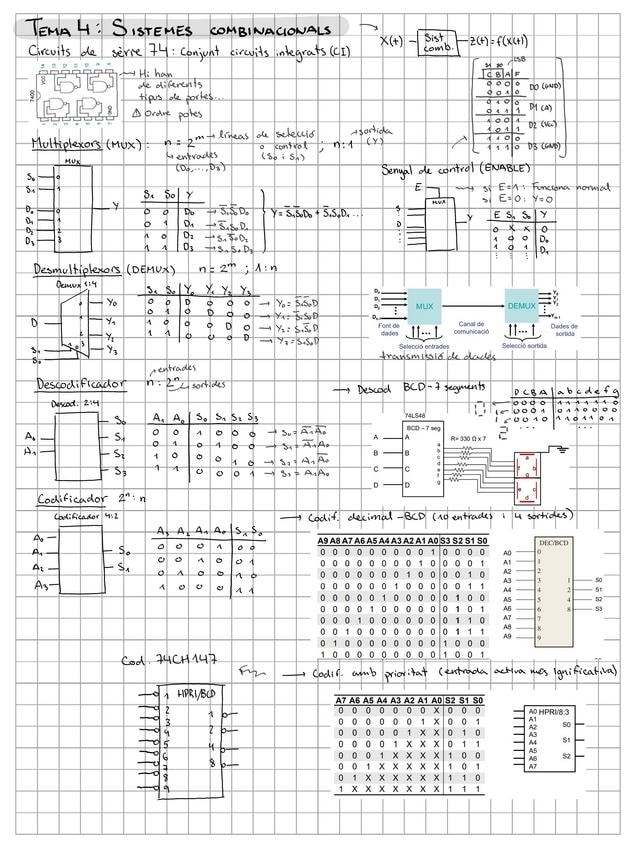 TEMA 4: SISTEMES COMBINACIONALS
Circuits de sèrie 74: Conjunt circuits integrats (CI)
X(t) → Sist comb. → Z(t) = f(X(t))
7400
VCC
GND
Hi han
de diferents
tipus de portes...
⚠ Ordre potes
S1 S0 LSB
C B A F
0 0 0
0 0 1
D0 (GND)
0 1 0
0 1 1
D1 (A)
1 0 0
1 0 1
D2 (Vcc)
1 1 0
1 1 1
D3 (GND)
Multiplexors (MUX): n = 2^m → líneas de selecció o control (S0 i S1) ; n:1 → sortida (Y)
entrades (D0,...,D3)
MUX
S0 0
S1 1
D0 0
D1 1
D2 2
D3 3
Y
S1 S0 Y
0 0 D0 → S̅1S̅0D0
0 1 D1 → S̅1S0D1
1 0 D2 → S1S̅0D2
1 1 D3 → S1S0D3
Y = S̅1S̅0D0 + S̅1S0D1 ...
Senyal de control (ENABLE)
E
MUX
S
D
Y
si E=1: Funciona normal
si E=0: Y=0
E S1 S0 Y
0 X X 0
1 0 0 D0
1 0 1 D1
Desmultiplexors (DEMUX) n = 2^m ; 1:n
Demux 1:4
D
S1
S0
Y0
Y1
Y2
Y3
S1 S0 Y0 Y1 Y2 Y3
0 0 D 0 0 0 → Y0 = S̅1S̅0D
0 1 0 D 0 0 → Y1 = S̅1S0D
1 0 0 0 D 0 → Y2 = S1S̅0D
1 1 0 0 0 D → Y3 = S1S0D
MUX
DEMUX
Font de dades
Canal de comunicació
Dades de sortida
Selecció entrades
Selecció sortida
transmissió de dades
Descodificador n:2^n
entrades
sortides
Descod. 2:4
A0
A1
S0
S1
S2
S3
A1 A0 S0 S1 S2 S3
0 0 1 0 0 0 → S0 = A̅1A̅0
0 1 0 1 0 0 → S1 = A̅1A0
1 0 0 0 1 0 → S2 = A1A̅0
1 1 0 0 0 1 → S3 = A1A0
→ Descod BCD-7 segments
D C B A a b c d e f g
0 0 0 0 1 1 1 1 1 1 0
0 0 0 1 0 1 1 0 0 0 0
74LS48
BCD – 7 seg
A
B
C
D
a
b
c
d
e
f
g
R= 330 Ω x 7
Codificador 2^n:n
Codificador 4:2
A0
A1
A2
A3
S0
S1
A3 A2 A1 A0 S1 S0
0 0 0 1 0 0
0 0 1 0 0 1
0 1 0 0 1 0
1 0 0 0 1 1
→ Codif. decimal-BCD (10 entrades i 4 sortides)
A9 A8 A7 A6 A5 A4 A3 A2 A1 A0 S3 S2 S1 S0
0 0 0 0 0 0 0 0 0 1 0 0 0 0
0 0 0 0 0 0 0 0 1 0 0 0 0 1
0 0 0 0 0 0 0 1 0 0 0 0 1 0
0 0 0 0 0 0 1 0 0 0 0 0 1 1
0 0 0 0 0 1 0 0 0 0 0 1 0 0
0 0 0 0 1 0 0 0 0 0 0 1 0 1
0 0 0 1 0 0 0 0 0 0 0 1 1 0
0 0 1 0 0 0 0 0 0 0 0 1 1 1
0 1 0 0 0 0 0 0 0 0 1 0 0 0
1 0 0 0 0 0 0 0 0 0 1 0 0 1
DEC/BCD
A0 0
A1 1
A2 2
A3 3 1 S0
A4 4 2 S1
A5 5 4 S2
A6 6 8 S3
A7 7
A8 8
A9 9
Cod. 74CH147
HPRI/BCD
1
2
3
4
5
6
7
8
9
1
2
4
8
→ Codif. amb prioritat (entrada activa més significativa)
A7 A6 A5 A4 A3 A2 A1 A0 S2 S1 S0
0 0 0 0 0 0 0 X 0 0 0
0 0 0 0 0 0 1 X 0 0 1
0 0 0 0 0 1 X X 0 1 0
0 0 0 0 1 X X X 0 1 1
0 0 0 1 X X X X 1 0 0
0 0 1 X X X X X 1 0 1
0 1 X X X X X X 1 1 0
1 X X X X X X X 1 1 1
HPRI/8:3
A0
A1
A2
A3
A4
A5
A6
A7
S0
S1
S2